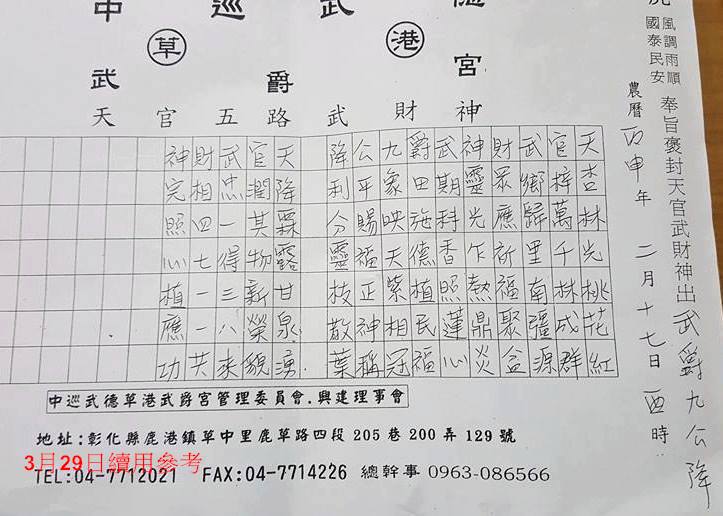 中巡武
草 港
武爵宮
天官五路武財神
風調雨順
國泰民安
奉旨褒封天官武財神出武爵九公降
農曆丙申年二月十七日酉時
天杏林光桃花紅
官梓萬千林成群
武鄉歸里南疆源
財眾應祈福聚益
神靈光乍熱鼎炎
武期科香照蓮心
爵田施德植民福
九象映天紫相冠
公平賜福正神稱
降利分靈枝散葉
天降霖露甘泉湧
官潤其物新榮貌
武忠一得三八來
財相四七一一共
神完照心植應功
中巡武德草港武爵宮管理委員會.興建理事會
地址:彰化縣鹿港鎮草中里鹿草路四段 205 巷 200 弄 129 號
3月29日續用參考
TEL:04-7712021 FAX:04-7714226 總幹事 0963-086566